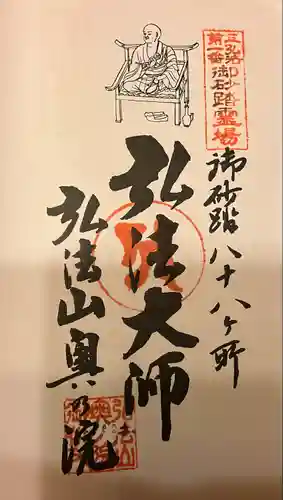 第一番御砂踏霊場
御砂踏八十八ヶ所
弘法大師
弘法山奥乃院
弘法山